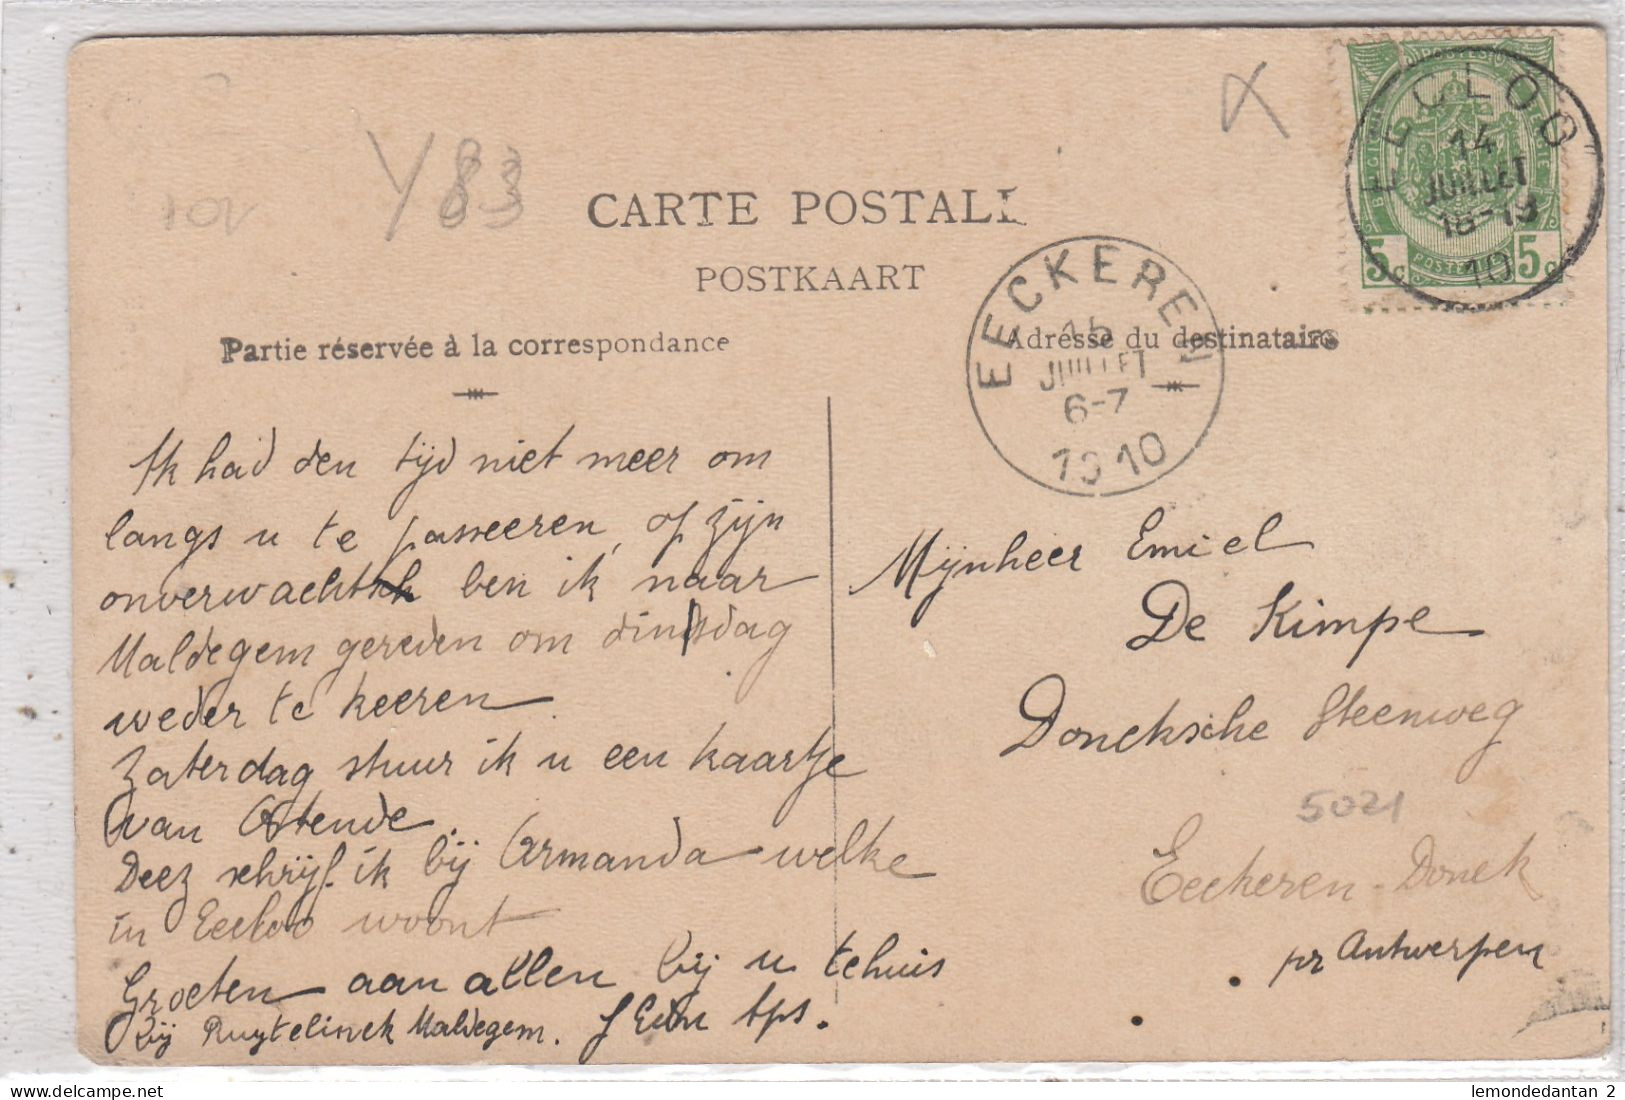 Y83
CARTE POSTALE
POSTKAART
Partie réservée à la correspondance
Adresse du destinataire
BELGIQUE
5c 5c
EECLOO
14
JUILLET
18-19
10
EECKEREN
15
JUILLET
6-7
1910
Ik had den tijd niet meer om
langs u te passeeren, op zijn
onverwacht ben ik naar
Maldegem gereden om dinsdag
weder te keeren
Zaterdag stuur ik u een kaartje
van Ostende
Deez schrijf ik bij Armanda welke
in Eecloo woont
Groeten aan allen bij u tehuis
Bij Ruytelinck Maldegem.
Mijnheer Emiel
De Kimpe
Doncksche Steenweg
5021
Eeckeren-Donck
pr Antwerpen
lemondedantan 2